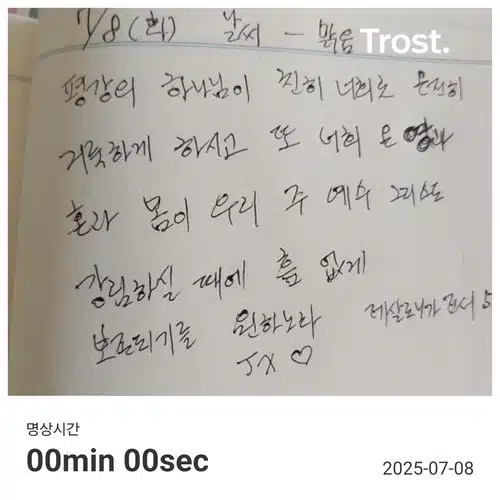 7/8 (화) 날씨 - 맑음
Trost.
평강의 하나님이 친히 너희로 온전히
거룩하게 하시고 또 너희 온 영과
혼과 몸이 우리 주 예수 그리스도
강림하실 때에 흠 없게
보전되기를 원하노라 데살로니가전서 5
JX ♡
명상시간
00min 00sec
2025-07-08